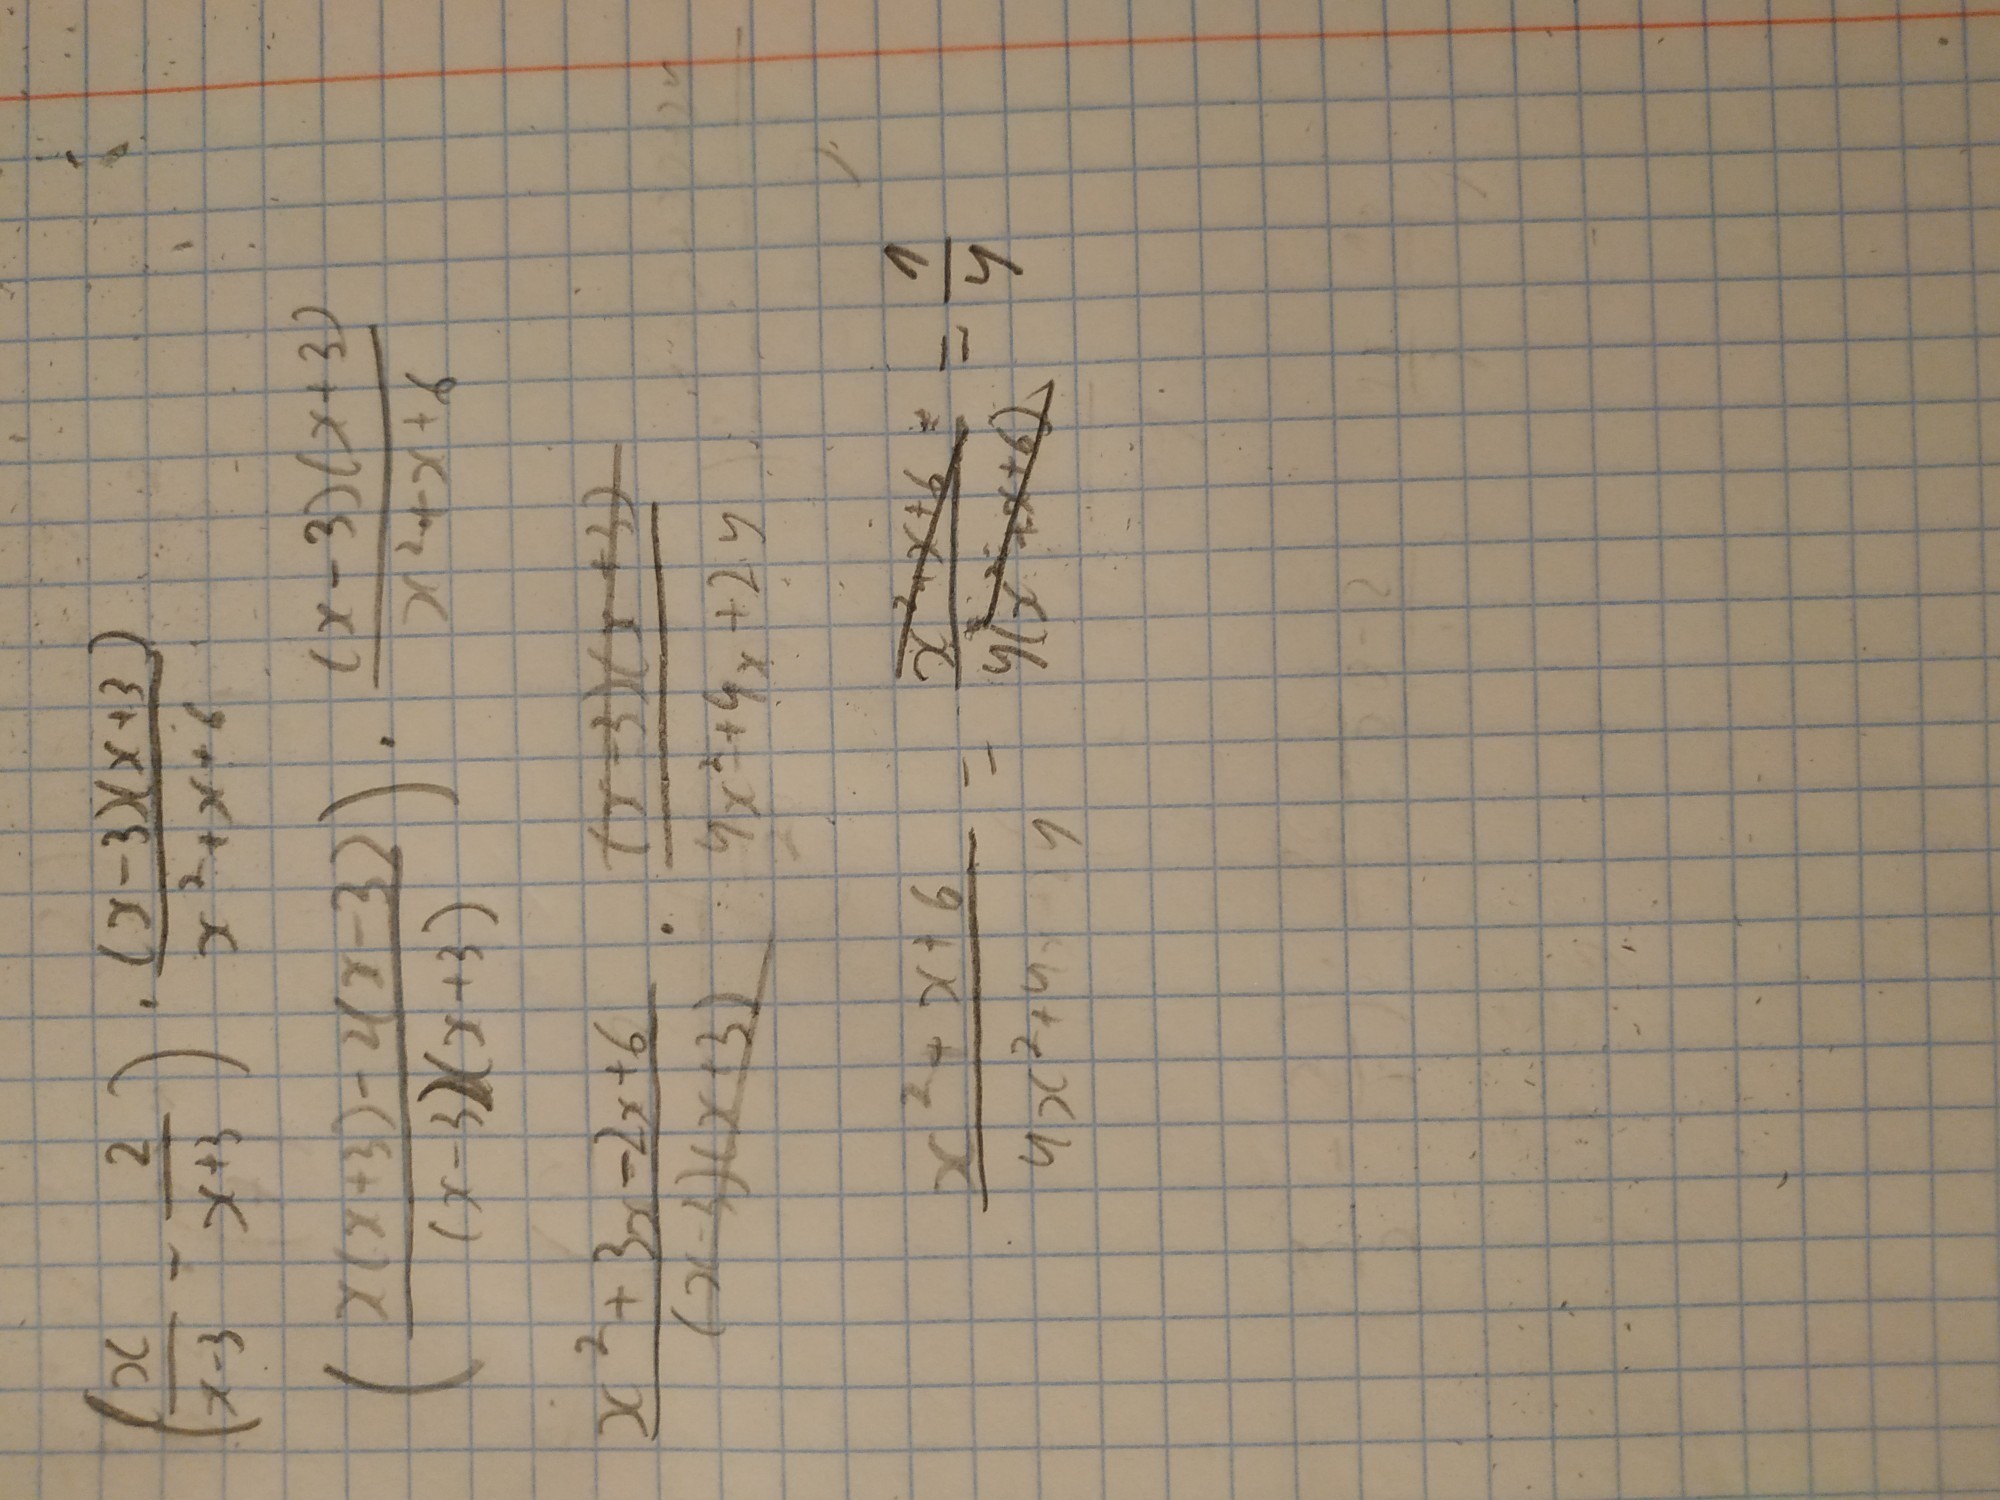 (x/(x-3) - 2/(x+3)) · (x-3)(x+3)/(x²+x+6)
(x(x+3)-2(x-3)/(x-3)(x+3)) · (x-3)(x+3)/(x²+x+6)
x²+3x-2x+6/(x-3)(x+3) · (x-3)(x+3)/4x²+4x+24
x²+x+6/4x²+4x = x²+x+6/4(x²+x+6) = 1/4